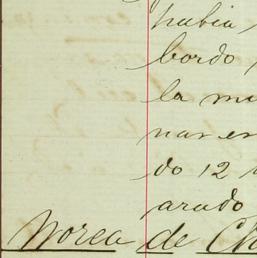 habia
bordo
la mu
nar en
do 12
arado
Norea de Cha